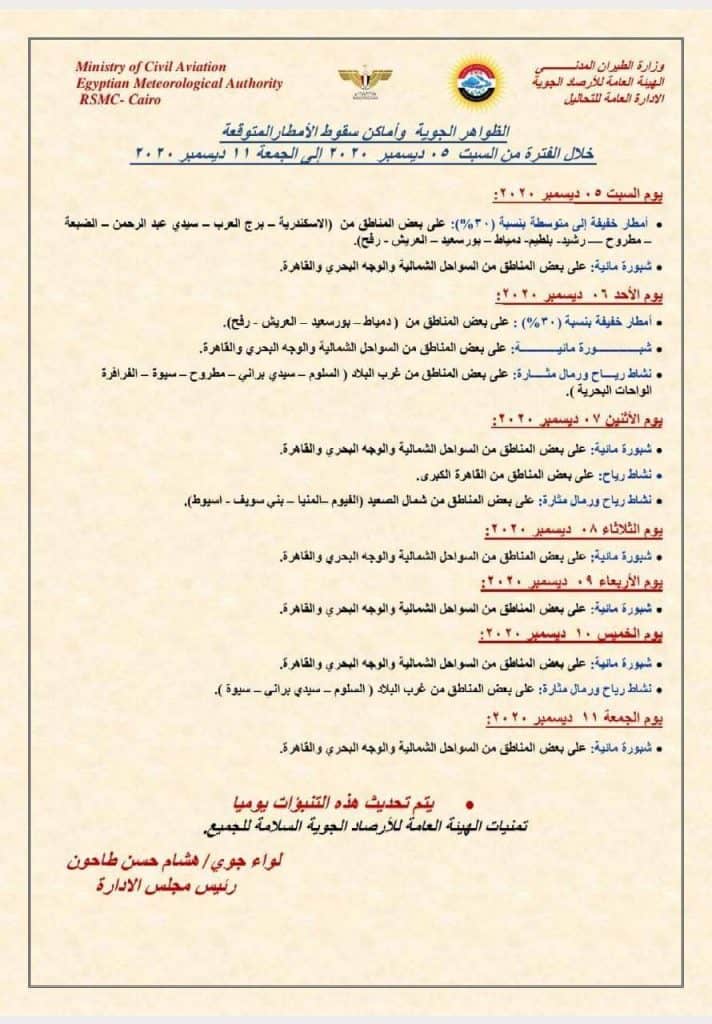 Ministry of Civil Aviation
Egyptian Meteorological Authority
RSMC- Cairo
وزارة الطيران المدنـــــي
الهيئة العامة للأرصاد الجوية
الادارة العامة للتحاليل
الظواهر الجوية وأماكن سقوط الأمطارالمتوقعة
خلال الفترة من السبت ٠٥ ديسمبر ٢٠٢٠ إلى الجمعة ١١ ديسمبر ٢٠٢٠
يوم السبت ٠٥ ديسمبر ٢٠٢٠:
• أمطار خفيفة إلى متوسطة بنسبة (٣٠%): على بعض المناطق من (الاسكندرية – برج العرب – سيدي عبد الرحمن – الضبعة
– مطروح — رشيد- بلطيم- دمياط – بورسعيد – العريش - رفح).
• شبورة مائية: على بعض المناطق من السواحل الشمالية والوجه البحري والقاهرة.
يوم الأحد ٠٦ ديسمبر ٢٠٢٠:
• أمطار خفيفة بنسبة (٣٠%) : على بعض المناطق من ( دمياط – بورسعيد – العريش - رفح).
• شبـــــــورة مائيـــــــة: على بعض المناطق من السواحل الشمالية والوجه البحري والقاهرة.
• نشاط ريـــاح ورمال مثـــارة: على بعض المناطق من غرب البلاد ( السلوم – سيدي براني – مطروح – سيوة – الفرافرة
الواحات البحرية ).
يوم الأثنين ٠٧ ديسمبر ٢٠٢٠:
• شبورة مائية: على بعض المناطق من السواحل الشمالية والوجه البحري والقاهرة.
• نشاط رياح: على بعض المناطق من القاهرة الكبرى.
• نشاط رياح ورمال مثارة: على بعض المناطق من شمال الصعيد (الفيوم –المنيا – بني سويف - اسيوط).
يوم الثلاثاء ٠٨ ديسمبر ٢٠٢٠:
• شبورة مائية: على بعض المناطق من السواحل الشمالية والوجه البحري والقاهرة.
يوم الأربعاء ٠٩ ديسمبر ٢٠٢٠:
• شبورة مائية: على بعض المناطق من السواحل الشمالية والوجه البحري والقاهرة.
يوم الخميس ١٠ ديسمبر ٢٠٢٠:
• شبورة مائية: على بعض المناطق من السواحل الشمالية والوجه البحري والقاهرة.
• نشاط رياح ورمال مثارة: على بعض المناطق من غرب البلاد ( السلوم – سيدي براني – سيوة ).
يوم الجمعة ١١ ديسمبر ٢٠٢٠:
• شبورة مائية: على بعض المناطق من السواحل الشمالية والوجه البحري والقاهرة.
• يتم تحديث هذه التنبؤات يوميا
تمنيات الهيئة العامة للأرصاد الجوية السلامة للجميع.
لواء جوي/ هشام حسن طاحون
رئيس مجلس الادارة